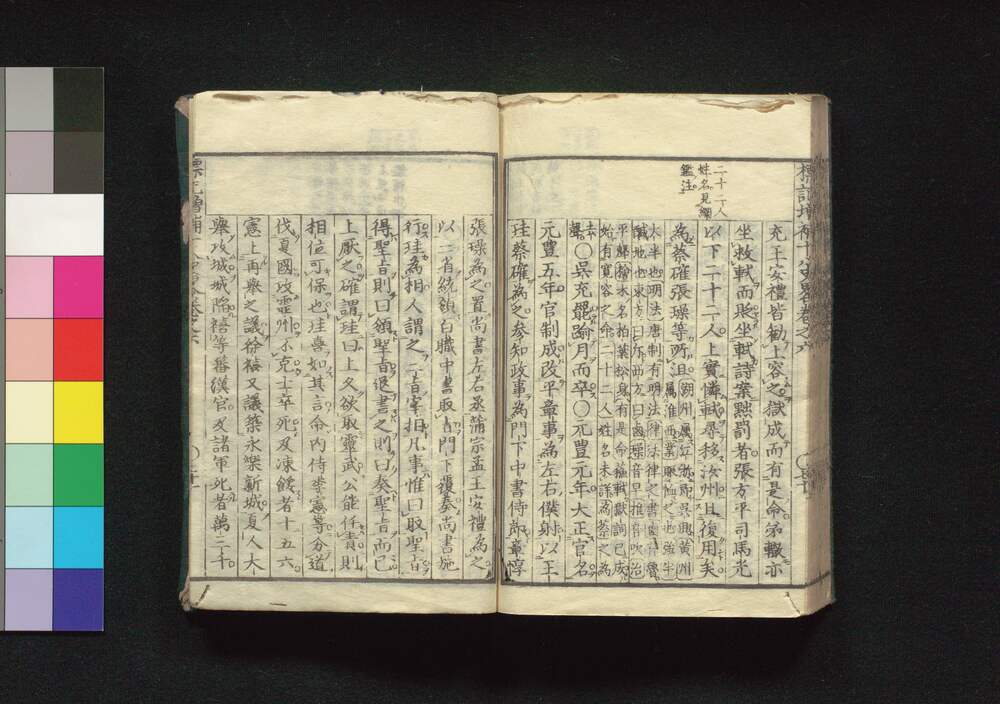 標記増補十八史畧巻之六
二十二人
姓名見綱
鑑注
充王安禮皆勧上容之獄成而有是命弟轍亦
坐救軾而貶坐軾詩案黜罰者張方平司馬光
以下二十二人上實憐軾尋移汝州且復用矣
為蔡確張璪等所沮
元豊五年官制成改平章事為左右僕射以王
珪蔡確為之参知政事為門下中書侍郎章惇
○呉充罷踰月而卒○元豊元年大正官名
張璪為之置尚書左右丞蒲宗孟王安禮為之
以三省統領百職中書取旨門下覆奏尚書施
行珪為相人謂之三旨宰相凡事惟曰取聖旨
得聖旨則曰領聖旨退書之則曰奏聖旨而已
上厭之確謂珪曰上久欲取靈武公能任責則
相位可保也珪喜如其言命内侍李憲等分道
伐夏國攻靈州不克士卒死及凍餒者十五六
憲上再擧之議徐禧又議築永樂新城夏人大
擧攻城城陥禧等蕃漢官及諸軍死者萬二千